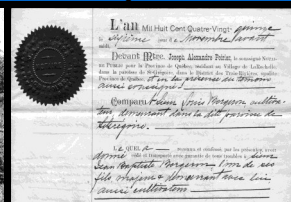 L'an Mil Huit Cent Quatre-Vingt- quinze
le sixième jour de Novembre avant
midi.
Devant Mtre. Joseph Alexandre Poirier, le soussigné NOTAI-
RE PUBLIC pour la Province de Québec, résidant au Village de LaRochelle
dans la paroisse de St-Grégoire, dans le District des Trois-Rivières, susdite
Province de Québec, et en la présence du témoin
aussi soussigné
Comparu sieur Louis Bergeron cultiva-
teur demeurant dans la dite paroisse de
St Grégoire.
LEQUEL a reconnu et confessé, par les présentes, avoir
donné cédé et transporté avec garantie de tous troubles à sieur
Jean Baptiste Bergeron l'un de ses
fils majeurs demeurant avec lui
aussi cultivateur